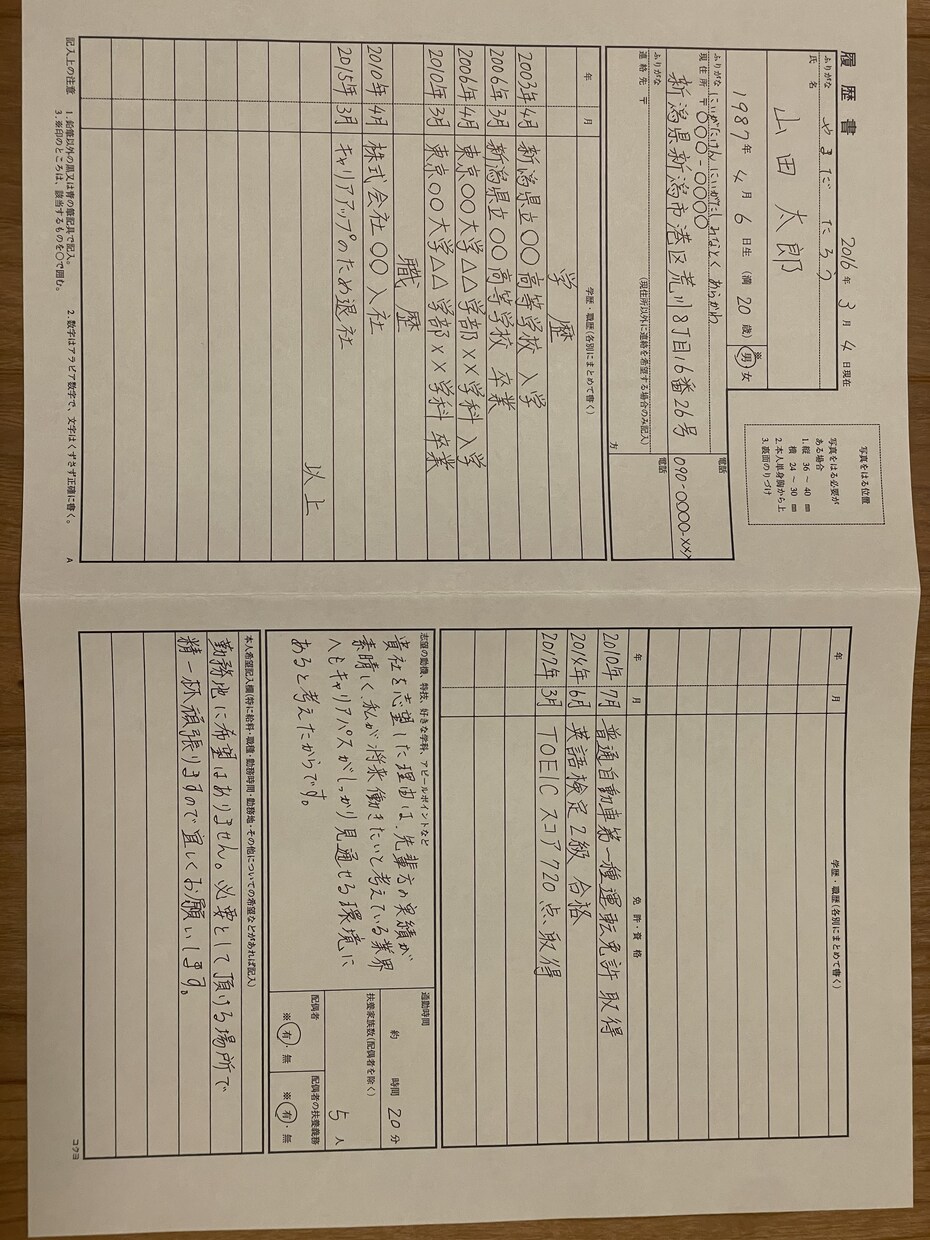 履歴書
2016年3月4日現在
ふりがな やまだ たろう
氏名 山田 太郎
1987年4月6日生(満20歳)
※男・女
写真をはる位置
写真をはる必要が
ある場合
1.縦 36~40㎜
横 24~30㎜
2.本人単身胸から上
3.裏面のりづけ
ふりがな にいがたけんにいがたしみなとくあらかわ
現住所 〒〇〇〇-〇〇〇〇
新潟県新潟市港区荒川8丁目16番26号
電話
090-0000-xxx
ふりがな
連絡先 〒 (現住所以外に連絡を希望する場合のみ記入)
方
電話
年 月 学歴・職歴(各別にまとめて書く)
学歴
2003年 4月 新潟県立〇〇高等学校 入学
2006年 3月 新潟県立〇〇高等学校 卒業
2006年 4月 東京〇〇大学△△学部××学科 入学
2010年 3月 東京〇〇大学△△学部××学科 卒業
職歴
2010年 4月 株式会社〇〇入社
2015年 3月 キャリアアップのため退社
以上
記入上の注意 1.鉛筆以外の黒又は青の筆記具で記入。 2.数字はアラビア数字で、文字はくずさず正確に書く。
3.※印のところは、該当するものを○で囲む。
A
年 月 学歴・職歴(各別にまとめて書く)
年 月 免許・資格
2010年 7月 普通自動車第一種運転免許 取得
2014年 6月 英語検定2級 合格
2017年 3月 TOEICスコア720点取得
志望の動機、特技、好きな学科、アピールポイントなど
貴社を志望した理由は、先輩方の実績が
素晴しく、私が将来働きたいと考えている業界
へもキャリアパスがしっかり見通せる環境に
あると考えたからです。
通勤時間
約 時間 20分
扶養家族数(配偶者を除く)
5人
配偶者
※有・無
配偶者の扶養義務
※有・無
本人希望記入欄(特に給料・職種・勤務時間・勤務地・その他についての希望などがあれば記入)
勤務地に希望はありません。必要として頂ける場所で
精一杯頑張りますので宜しくお願いします。
コクヨ